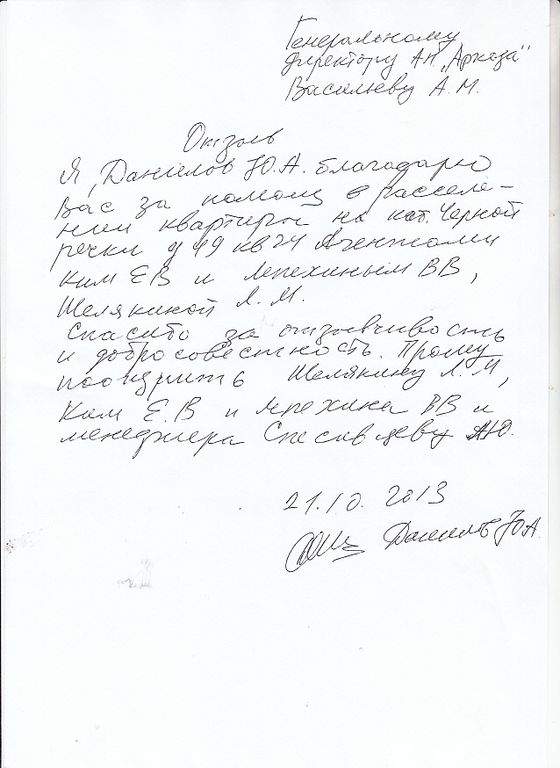 Генеральному
директору АН "Арказа"
Васильеву А.М.
Отзыв
Я, Данилов Ю.А. благодарю
Вас за помощь в расселе-
нии квартиры на наб. Черной
речки д 19 кв 24 Агентами
Ким ЕВ и Лепехиным ВВ,
Шелякиной Л.М.
Спасибо за отзывчивость
и добросовестность. Прошу
поощрить Шелякину Л.М,
Ким Е.В и Лепехина ВВ и
менеджера Спесивцеву АЮ.
21.10. 2013
Данилов Ю.А.